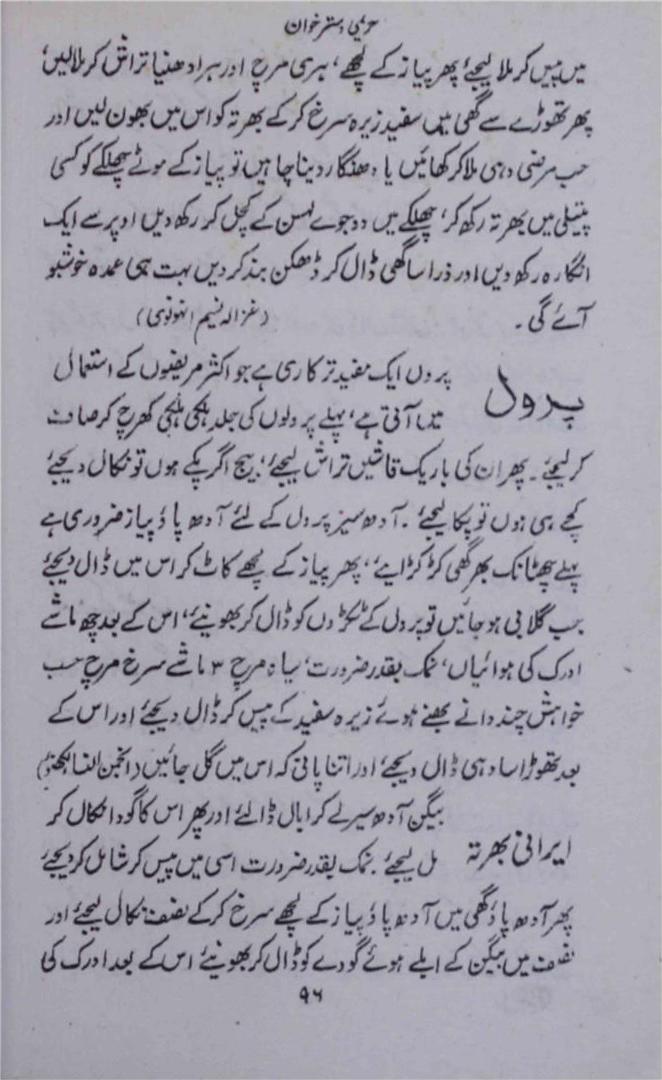 حریمی دسترخوان
میں پیس کر ملا لیجئے، پھر پیاز کے لچھے، ہری مرچ اور ہرا دھنیا تراش کر ملالیں،
پھر تھوڑے سے گھی میں سفید زیرہ سرخ کرکے بھرتہ کو اس میں بھون لیں اور
حسب مرضی دہی ملا کر کھائیں یا دھنگار دینا چاہیں تو پیاز کے موٹے چھلکے کو کسی
پتیلی میں بھرتہ رکھ کر، چھلکے میں دو جوے لہسن کے کچل کر رکھ دیں اوپر سے ایک
انگارہ رکھ دیں اور ذرا سا گھی ڈال کر ڈھکن بند کردیں بہت ہی عمدہ خوشبو
آئے گی۔ (غزالہ نسیم انہونوی)
پرول
پرول ایک مفید ترکاری ہے جو اکثر مریضوں کے استعمال
میں آتی ہے، پہلے پرولوں کی جلد ہلکی ہلکی کھرچ کر صاف
کرلیجئے۔ پھر ان کی باریک قاشیں تراش لیجئے، بیج اگر پکے ہوں تو نکال دیجئے
کچے ہی ہوں تو پکا لیجئے۔ آدھ سیر پرول کے لئے آدھ پاؤ پیاز ضروری ہے
پہلے چھٹانک بھر گھی کڑکڑایئے، پھر پیاز کے لچھے کاٹ کر اس میں ڈال دیجئے
جب گلابی ہوجائیں تو پرول کے ٹکڑوں کو ڈال کر بھونئے، اس کے بعد چھ ماشے
ادرک کی ہوائیاں، نمک بقدر ضرورت، سیاہ مرچ ۳ ماشے سرخ مرچ حسب
خواہش چند دانے بھنے ہوئے زیرہ سفید کے پیس کر ڈال دیجئے اور اس کے
بعد تھوڑا سا دہی ڈال دیجئے اور اتنا پانی کہ اس میں گل جائیں (انجمن النسا لکھنؤ)
ایرانی بھرتہ
بیگن آدھ سیر لے کر ابال ڈالئے اور پھر اس کا گودا نکال کر
مل لیجئے۔ نمک بقدر ضرورت اسی میں پیس کر شامل کردیجئے
پھر آدھ پاؤ گھی میں آدھ پاؤ پیاز کے لچھے سرخ کرکے نصف نکال لیجئے اور
نصف میں بیگن کے ابلے ہوئے گودے کو ڈال کر بھونئے اس کے بعد ادرک کی
۹۶